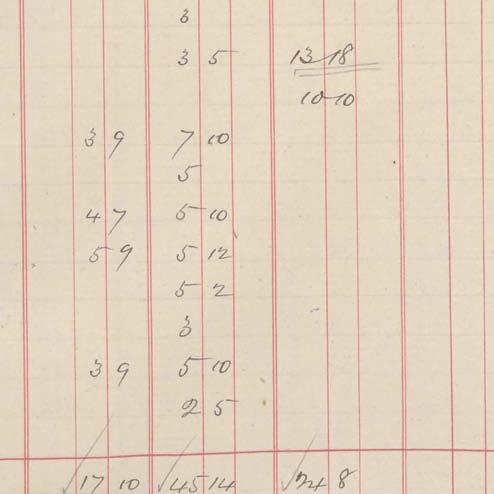 3
3 5 13 18
10 10
3 9 7 10
5
4 7 5 10
5 9 5 12
5 2
3
3 9 5 10
2 5
√17 10 √45 14 √24 8